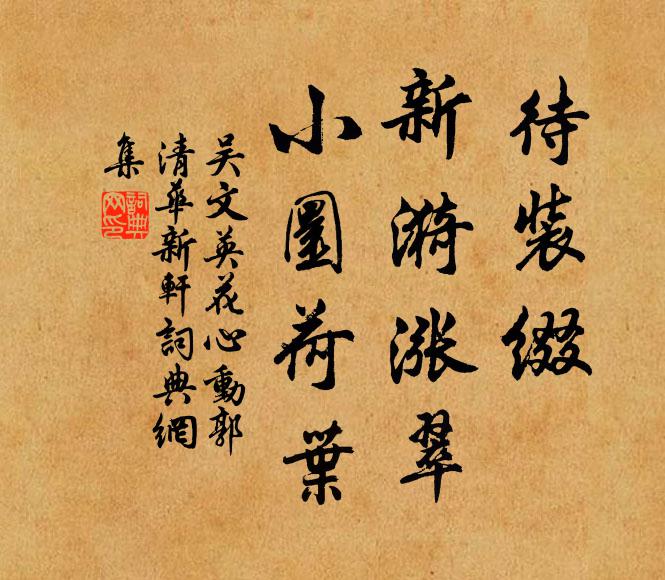 待裝綴
新漪漲翠
小圜荷葉
吳文英花心動郭
清華新軒詞典網
集
詞典網印